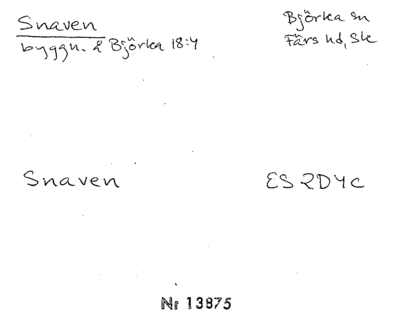 Snaven
Björka sn
byggn. å Björka 18:4
Färs hd, Sk
Snaven
ES 2D4c
Nr 13875